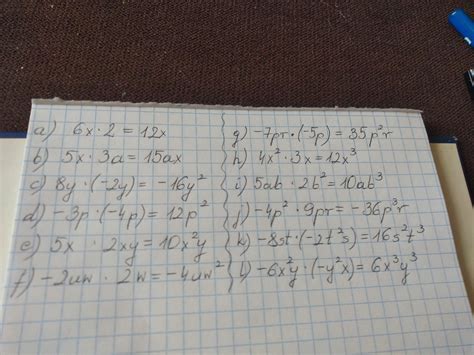 a) 6x · 2 = 12x
b) 5x · 3a = 15ax
c) 8y · (-2y) = -16y²
d) -3p · (-4p) = 12p²
e) 5x · 2xy = 10x²y
f) -2uw · 2w = -4uw²
g) -7pr · (-5p) = 35p²r
h) 4x² · 3x = 12x³
i) 5ab · 2b² = 10ab³
j) -4p² · 9pr = -36p³r
k) -8st · (-2t²s) = 16s²t³
l) -6x²y · (-y²x) = 6x³y³